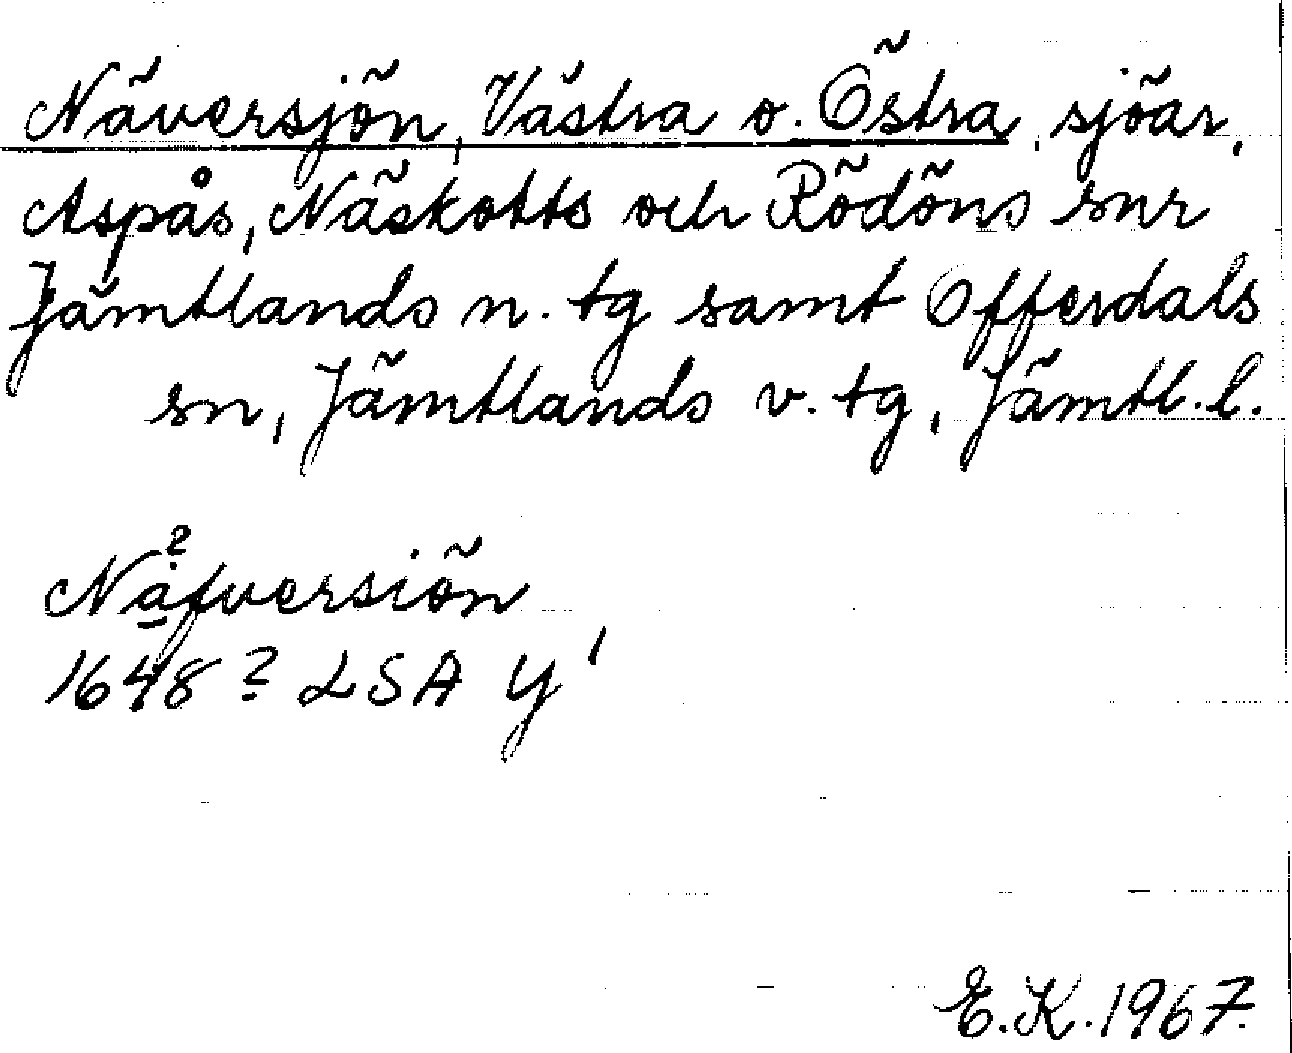 Näversjön, Västra o. Östra, sjöar,
Aspås, Näskotts och Rödöns snr
Jämtlands n. tg samt Offerdals
sn, Jämtlands v. tg, Jämtl. l.
?
Nåfversiön
1648? LSA Y'
E.K. 1967.